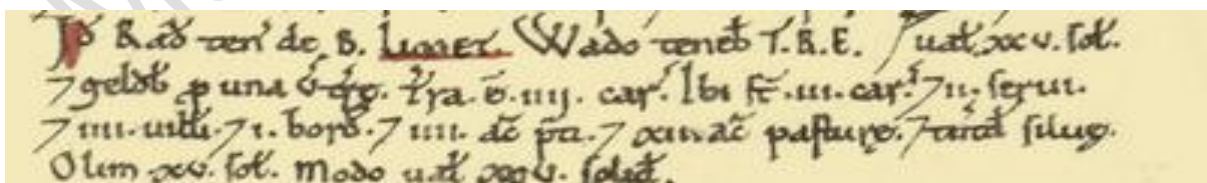 Id̃ Rad̃ ten' de B. LIMET. Wado teneb̄ T.R.E.
⁊ geldb̄ ꝑ una v̄ tr̃a. ē. iiij. car'. Ibi st̄. iii. car'. ⁊ ii. serui.
⁊ iiii. uilli. ⁊ i. bord̄. ⁊ iiii. ac̃ p̃ti. ⁊ xiii ac̃ pasturę. ⁊ tantd̄ siluę.
Olim xv. sol̄. modo ual̄ xxv. solid̄.